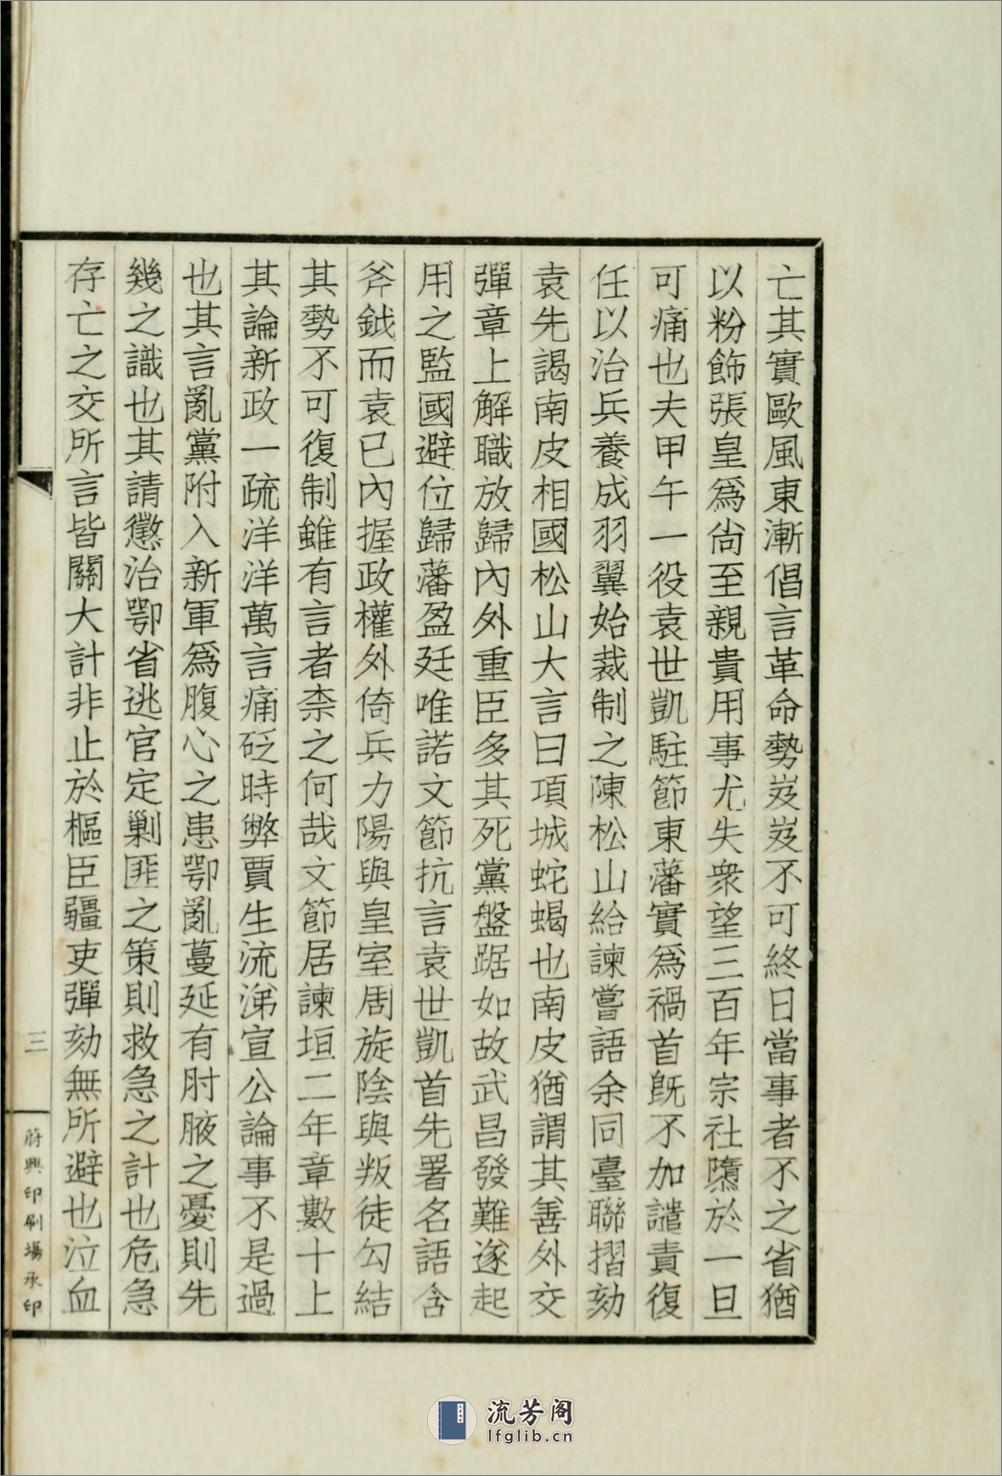 亡其實歐風東漸倡言革命勢岌岌不可終日當事者不之省猶
以粉飾張皇爲尙至親貴用事尤失衆望三百年宗社隳於一旦
可痛也夫甲午一役袁世凱駐節東藩實爲禍首旣不加譴責復
任以治兵養成羽翼始裁制之陳松山給諫嘗語余同臺聯摺劾
袁先謁南皮相國松山大言曰項城蛇蝎也南皮猶謂其善外交
彈章上解職放歸內外重臣多其死黨盤踞如故武昌發難遂起
用之監國避位歸藩盈廷唯諾文節抗言袁世凱首先署名語含
斧鉞而袁已內握政權外倚兵力陽與皇室周旋陰與叛徒勾結
其勢不可復制雖有言者柰之何哉文節居諫垣二年章數十上
其論新政一疏洋洋萬言痛砭時弊賈生流涕宣公論事不是過
也其言亂黨附入新軍爲腹心之患鄂亂蔓延有肘腋之憂則先
幾之識也其請懲治鄂省逃官定剿匪之策則救急之計也危急
存亡之交所言皆關大計非止於樞臣疆吏彈劾無所避也泣血
三
蔚興印刷場承印
流芳阁
lfglib.cn